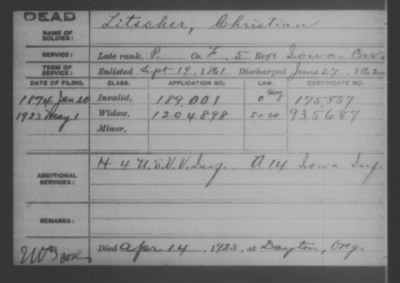 DEAD
NAME OF SOLDIER: Litscher, Christian
SERVICE: Late rank, P. Co. F, 5 Reg't Iowa Cav.
TERM OF SERVICE: Enlisted Sept 19, 1861 Discharged June 27, 1862
DATE OF FILING. CLASS. APPLICATION NO. LAW. CERTIFICATE NO.
1874 Jan 20 Invalid, 189,001 175,557
1923 May 1 Widow, 1204898 935687
Minor,
ADDITIONAL SERVICES: H 4 U.S.V.V. Inf. A 14 Iowa Inf.
REMARKS:
Died Apr 14, 1923, at Dayton, Oreg.